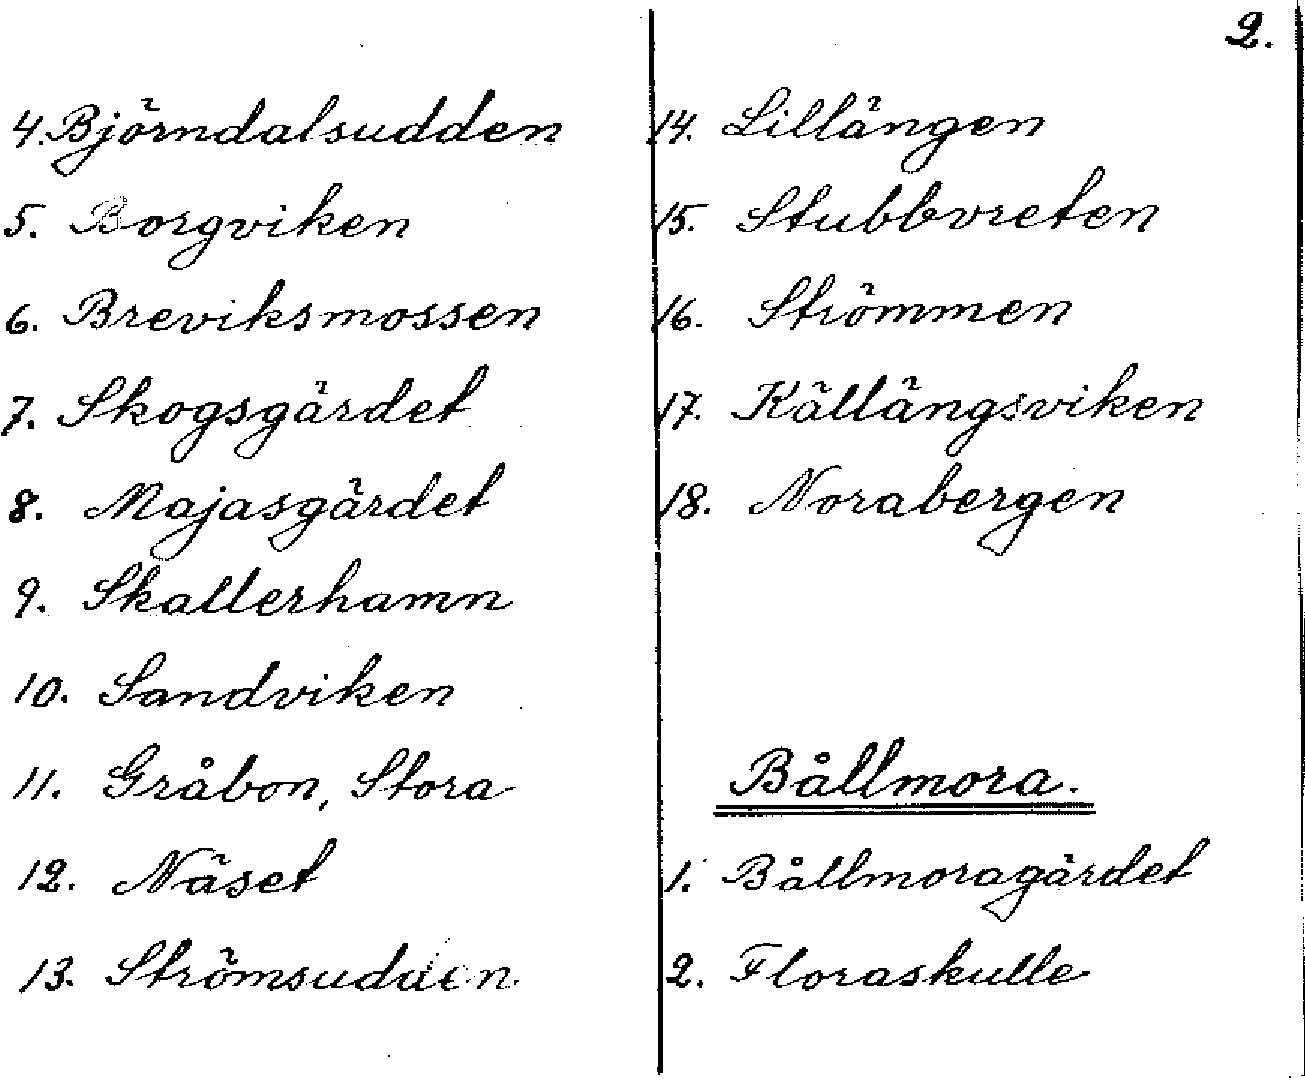 2.
4. Björndalsudden
5. Borgviken
6. Breviksmossen
7. Skogsgärdet
8. Majasgärdet
9. Skallerhamn
10. Sandviken
11. Gråbon, Stora
12. Näset
13. Strömsudden
14. Lillängen
15. Stubbvreten
16. Strömmen
17. Källängsviken
18. Norabergen
Bållmora.
1. Bållmoragärdet
2. Floraskulle